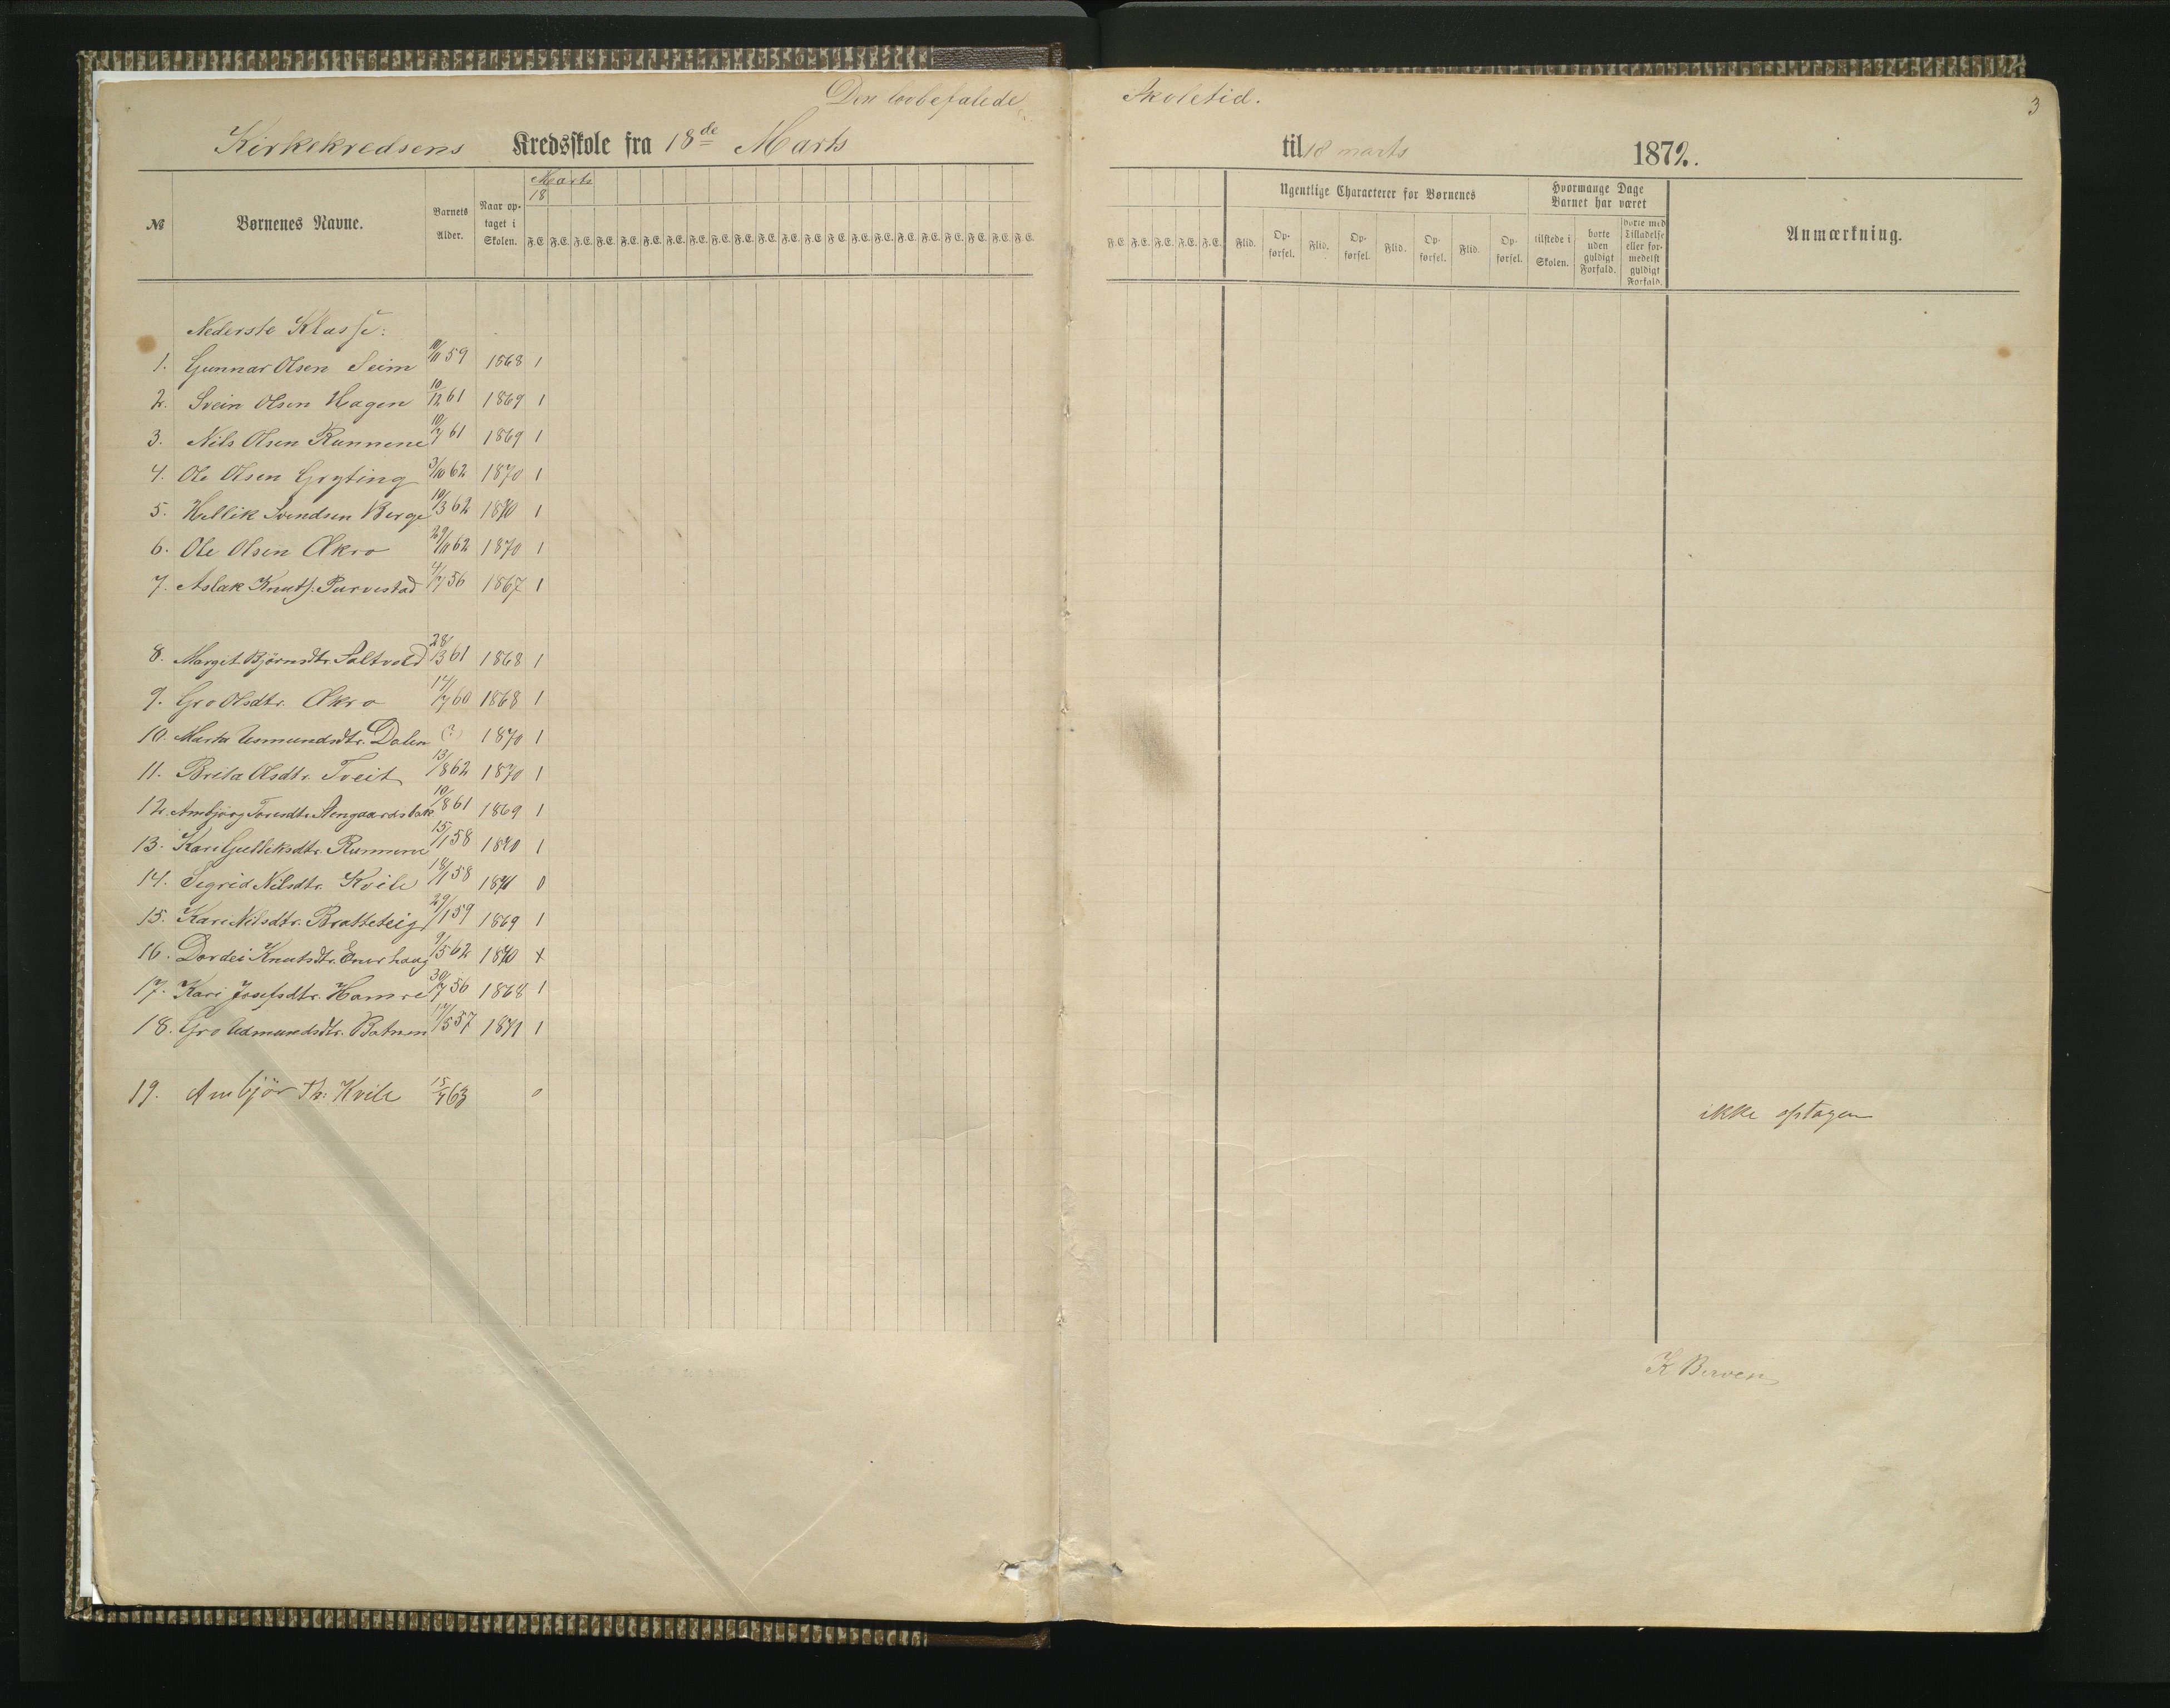 Den lovbefalede Skoletid. 3
Kirkekredsens Kredsskole fra 18de Marts til 18 marts 1872.
Marts
18
№ Børnenes Navne. Barnets Alder. Naar optaget i Skolen. F.E. F.E. F.E. F.E. F.E. F.E. F.E. F.E. F.E. F.E. F.E. F.E. F.E. F.E. F.E. F.E. F.E. F.E. F.E. F.E. F.E. F.E. F.E. F.E. F.E. F.E. F.E.
Ugentlige Characterer for Børnenes
Flid. Opførsel. Flid. Opførsel. Flid. Opførsel. Flid. Opførsel.
Hvormange Dage Barnet har været
tilstede i Skolen. borte uden gyldigt Forfald. borte med Tilladelse eller formedelst gyldigt Forfald.
Anmærkning.
Nederste Klasse:
1. Gunnar Olsen Seim 10/11 59 1868 1
2. Svein Olsen Hagen 10/12 61 1869 1
3. Nils Olsen Runnene 10/7 61 1869 1
4. Ole Olsen Gryting 3/10 62 1870 1
5. Hellik Svendsen Berge 10/3 62 1870 1
6. Ole Olsen Økro 29/11 62 1870 1
7. Aslak Knuts. Purvestad 4/7 56 1867 1
8. Margit Bjørnsdtr. Saltvold 28/3 61 1868 1
9. Gro Olsdtr. Økro 17/7 60 1868 1
10. Marta Asmundsdtr. Dalen (?) 1870 1
11. Brita Olsdtr. Tveit 13/8 62 1870 1
12. Ambjørg Toresdtr. Stengaardsbak 10/8 61 1869 1
13. Kari Gulleksdtr. Runnene 15/1 58 1870 1
14. Sigrid Nilsdtr. Kvile 18/1 58 1871 0
15. Kari Nilsdtr. Bratteteig 29/1 59 1869 1
16. Dordei Knutsdtr. Enerhaug 9/5 62 1870 +
17. Kari Josefsdtr. Hamre 30/7 56 1868 1
18. Gro Asmundsdtr. Botnen 17/5 57 1871 1
19. Ambjør Th: Kvile 15/7 63 0 ikke optagen
K Berven